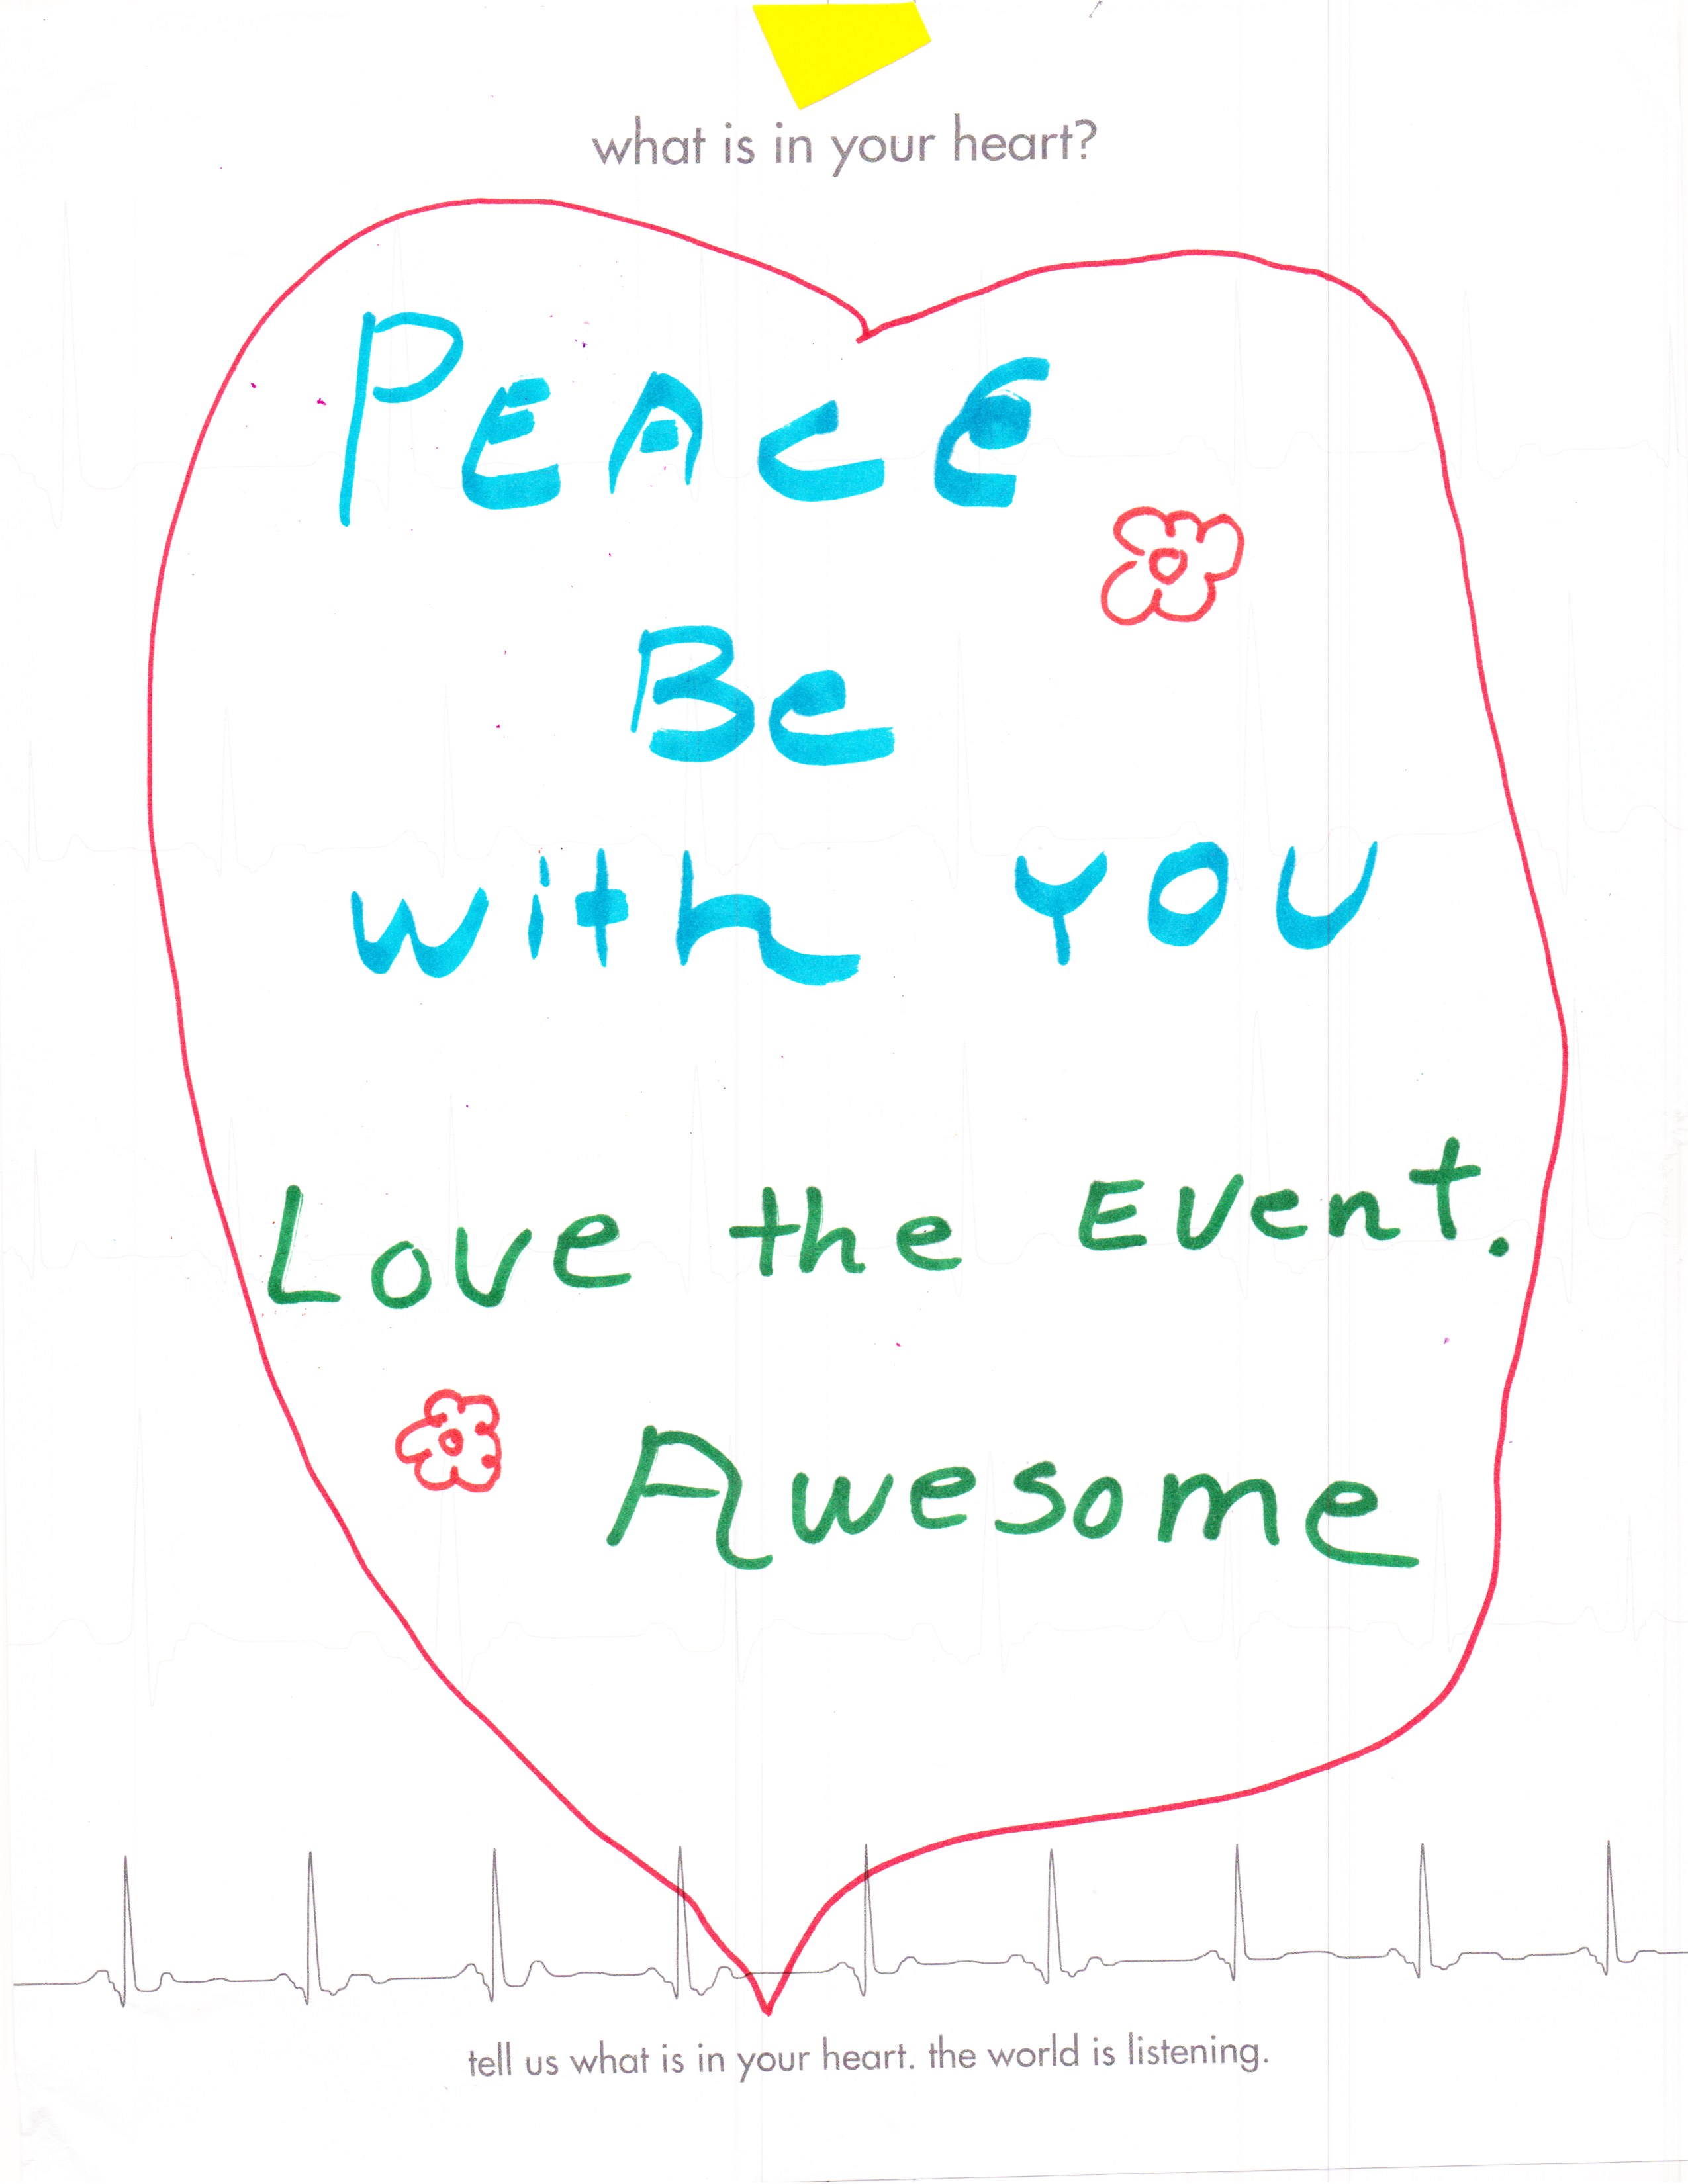 what is in your heart?
PEACE
Be
with YOU
Love the Event.
Awesome
tell us what is in your heart. the world is listening.